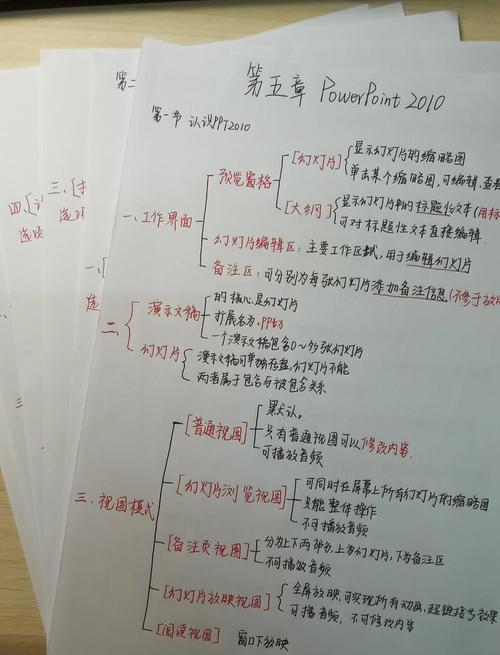 第五章 PowerPoint 2010
第一节 认识PPT2010
一、工作界面
预览窗格
[幻灯片]
显示幻灯片的缩略图
单击某个缩略图,可编辑,查看
[大纲]
显示幻灯片中的标题性文本(用标
可对标题性文本直接编辑
幻灯片编辑区:主要工作区域,用于编辑幻灯片
备注区:可分别为每张幻灯片添加备注信息(不参于放
二、
演示文稿
的核心是幻灯片
扩展名为.pptx
一个演示文稿包含0~多张幻灯片
幻灯片
演示文稿可单独存盘,幻灯片不能
两者属于包含与被包含关系
三、视图模式
[普通视图]
默认。
只有普通视图可以修改内容.
可播放音频
[幻灯片浏览视图]
可同时在屏幕上所有幻灯片的缩略图
只能整体操作
不可播放音频
[备注页视图]
分为上下两部分,上为幻灯片,下为备注区
不可播放音频
[幻灯片放映视图]
全屏放映,可实现所有动画,超链接等效果
可播音频,不可修改内容
[阅读视图] 窗口下放映
第二
三、[
选项
四、[
选项
一、[
选
三